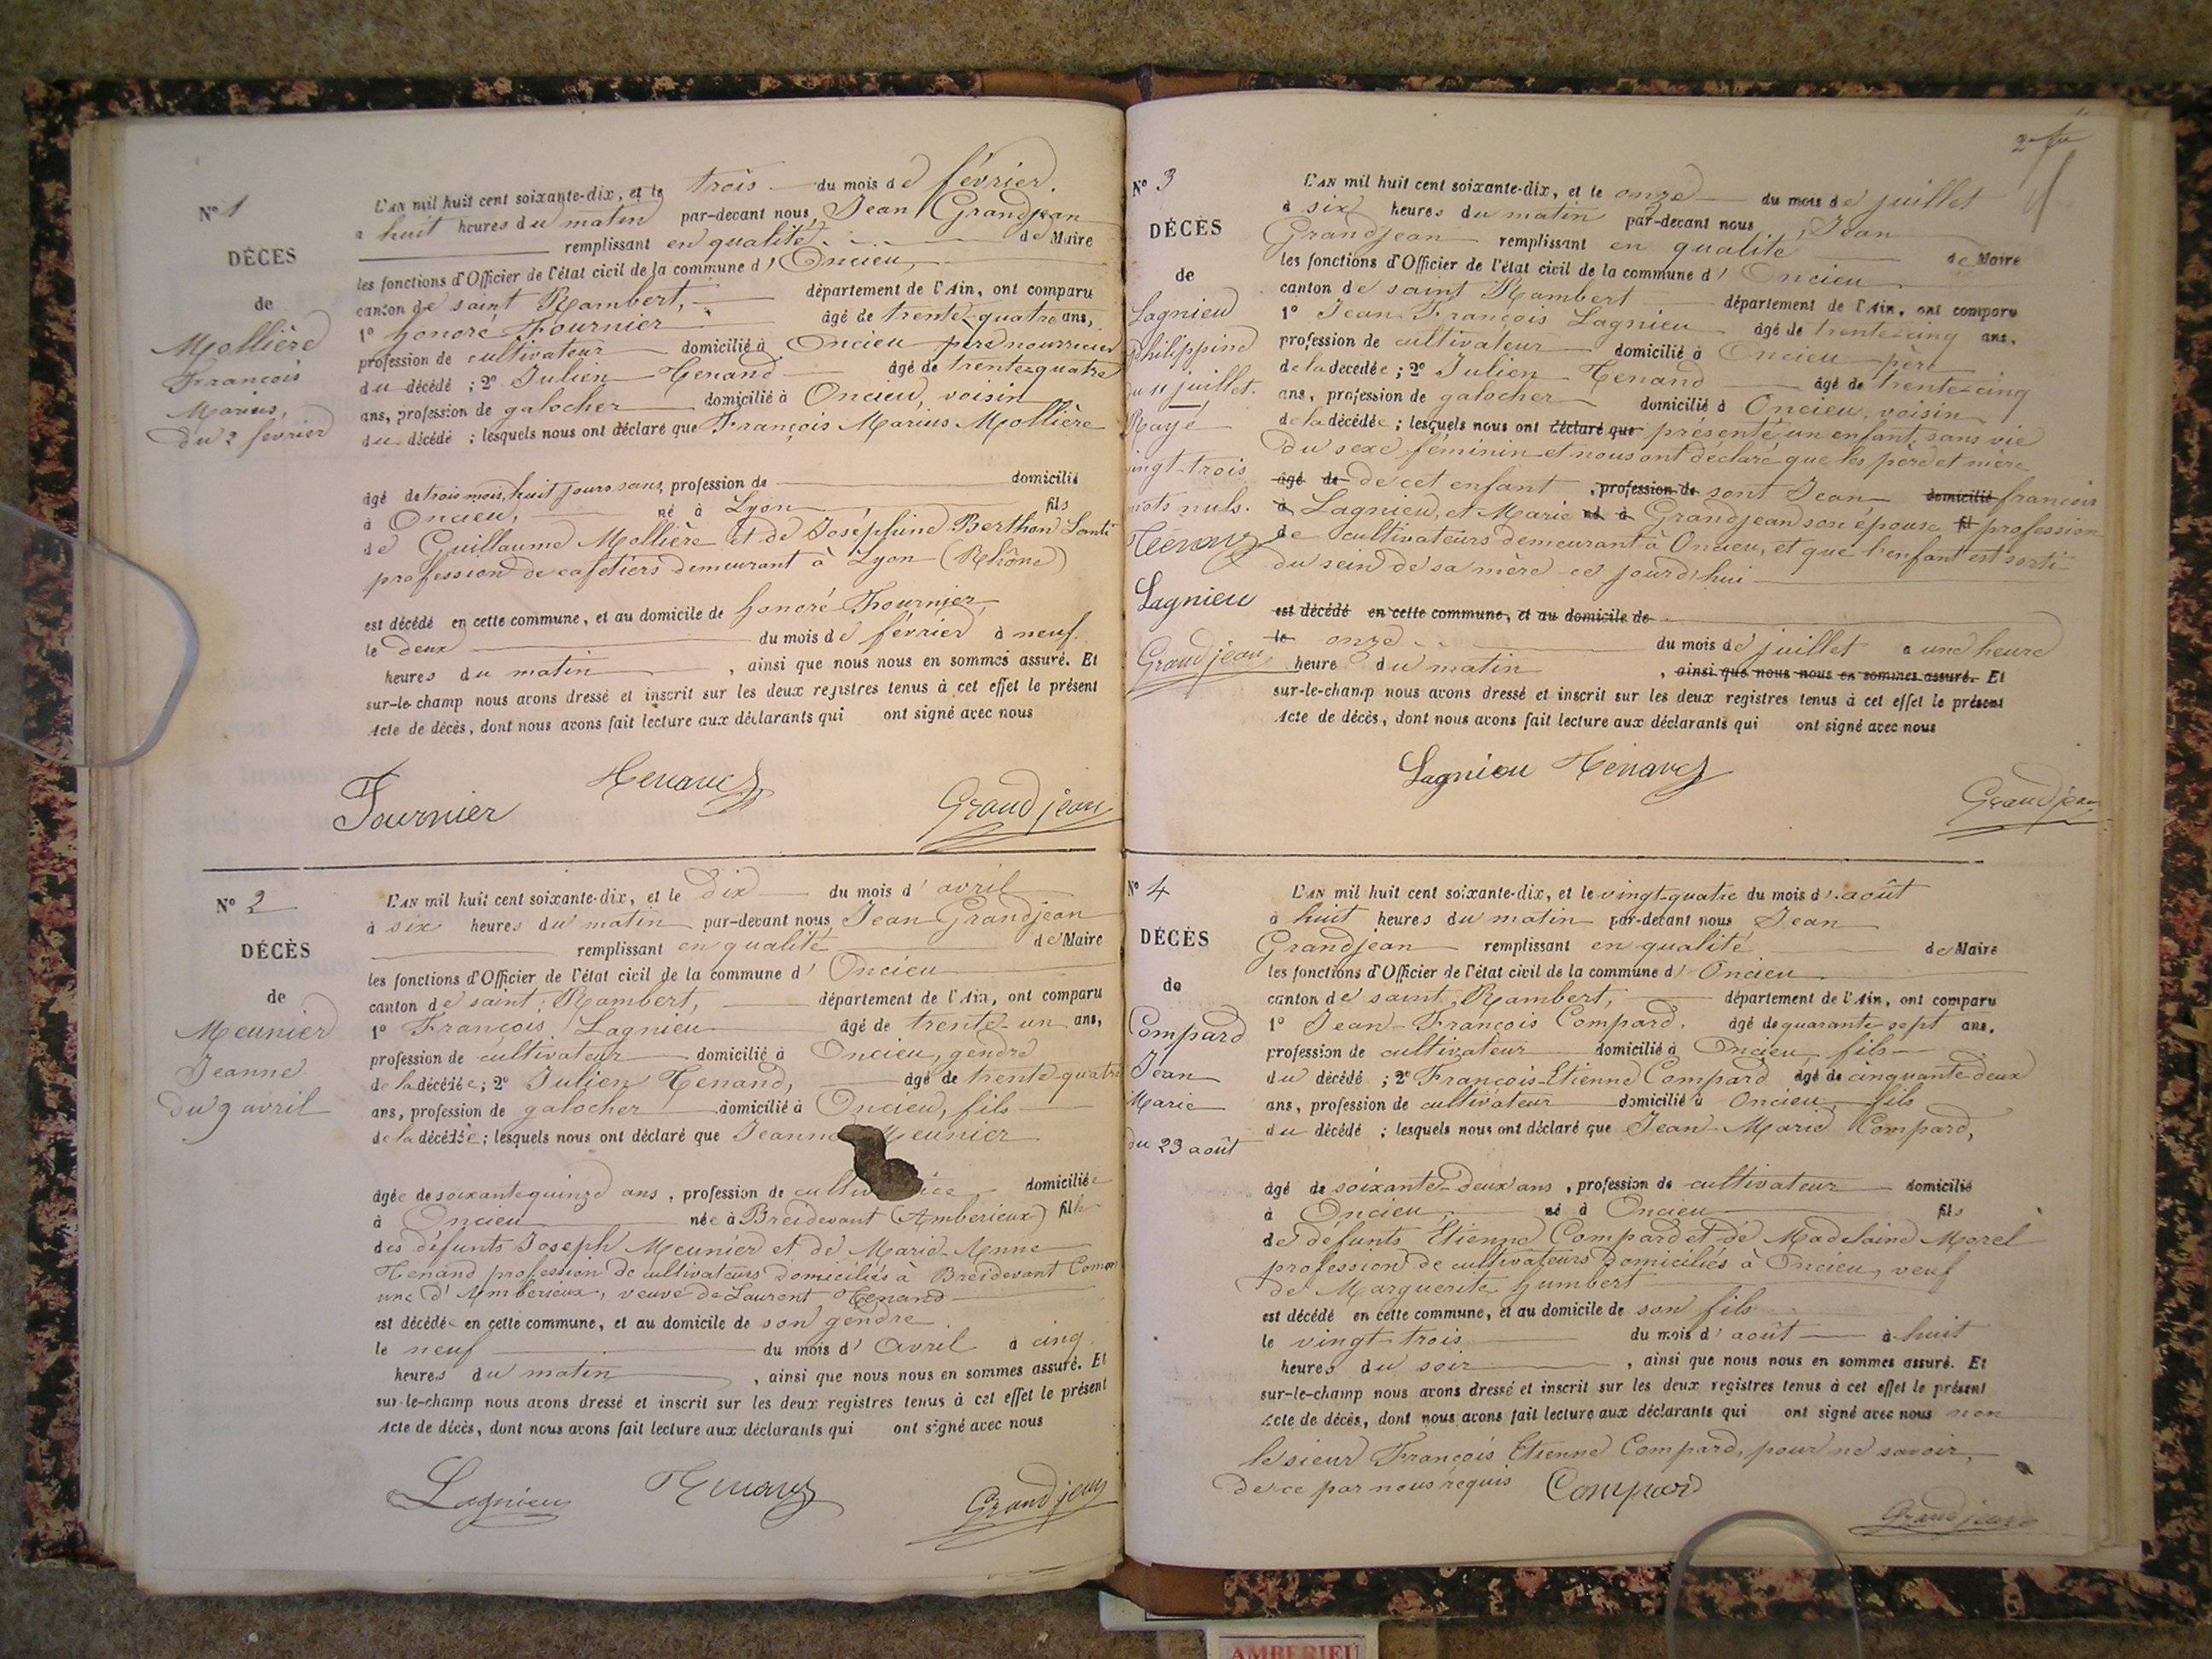 N° 1
DÉCÈS
de
Mollière
François
Marius,
du 2 février
L'AN mil huit cent soixante-dix, et le trois du mois de février.
à huit heures du matin par-devant nous, Jean Grandjean
remplissant en qualité de Maire
les fonctions d'Officier de l'état civil de la commune d'Oncieu,
canton de saint Rambert, département de l'Ain, ont comparu
1° honoré Fournier âgé de trente-quatre ans,
profession de cultivateur domicilié à Oncieu père nourricier
du décédé ; 2° Julien Tenand âgé de trente-quatre
ans, profession de galocher domicilié à Oncieu, voisin
du décédé ; lesquels nous ont déclaré que François Marius Mollière
âgé de trois mois, huit jours sans, profession de domicilié
à Oncieu, né à Lyon, fils
de Guillaume Mollière et de Joséphine Berthon
profession de cafetiers demeurant à Lyon (Rhône)
est décédé en cette commune, et au domicile de honoré Fournier,
le deux du mois de février à neuf
heures du matin, ainsi que nous nous en sommes assuré. Et
sur-le-champ nous avons dressé et inscrit sur les deux registres tenus à cet effet le présent
Acte de décès, dont nous avons fait lecture aux déclarants qui ont signé avec nous
Fournier Tenand Grandjean
N° 2
DÉCÈS
de
Meunier
Jeanne
du 9 avril
L'AN mil huit cent soixante-dix, et le dix du mois d'avril
à six heures du matin par-devant nous Jean Grandjean
remplissant en qualité de Maire
les fonctions d'Officier de l'état civil de la commune d'Oncieu
canton de saint Rambert, département de l'Ain, ont comparu
1° François Lagnieu âgé de trente-un ans,
profession de cultivateur domicilié à Oncieu, gendre
de la décédée ; 2° Julien Tenand, âgé de trente-quatre
ans, profession de galocher domicilié à Oncieu, fils
de la décédée ; lesquels nous ont déclaré que Jeanne Meunier
âgée de soixante quinze ans, profession de domiciliée
à Oncieu née à Breidevant (Amberieux) fille
des défunts Joseph Meunier et de Marie-Anne
Tenand profession de cultivateurs domiciliés à Breidevant Comm
une d'Amberieux, veuve de Laurent Tenand
est décédée en cette commune, et au domicile de son gendre
le neuf du mois d'Avril à cinq
heures du matin, ainsi que nous nous en sommes assuré. Et
sur-le-champ nous avons dressé et inscrit sur les deux registres tenus à cet effet le présent
Acte de décès, dont nous avons fait lecture aux déclarants qui ont signé avec nous
Lagnieu Tenand Grandjean
N° 3
DÉCÈS
de
Lagnieu
Philippine
du 11 juillet.
Rayé
vingt-trois
mots nuls.
Tenand
Lagnieu
Grandjean
L'AN mil huit cent soixante-dix, et le onze du mois de juillet
à six heures du matin par-devant nous, Jean
Grandjean remplissant en qualité de Maire
les fonctions d'Officier de l'état civil de la commune d'Oncieu
canton de saint Rambert département de l'Ain, ont comparu
1° Jean-François Lagnieu âgé de trente-cinq ans.
profession de cultivateur domicilié à Oncieu père
de la décédée ; 2° Julien Tenand âgé de trente-cinq
ans, profession de galocher domicilié à Oncieu, voisin
de la décédée ; lesquels nous ont déclaré que présenté un enfant sans vie
du sexe féminin et nous ont déclaré que les père et mère
âgé de de cet enfant, profession de sont Jean domicilié françois
à Lagnieu, et Marie né à Grandjean son épouse fil profession
de cultivateurs demeurant à Oncieu, et que l'enfant est sorti
du sein de sa mère ce jourd'hui
est décédé en cette commune, et au domicile de
le onze du mois de juillet à une heure
heure du matin, ainsi que nous nous en sommes assuré. Et
sur-le-champ nous avons dressé et inscrit sur les deux registres tenus à cet effet le présent
Acte de décès, dont nous avons fait lecture aux déclarants qui ont signé avec nous
Lagnieu Tenand
Grandjean
N° 4
DÉCÈS
de
Compard
Jean
Marie
du 23 août
L'AN mil huit cent soixante-dix, et le vingt-quatre du mois d'août
à huit heures du matin par-devant nous Jean
Grandjean remplissant en qualité de Maire
les fonctions d'Officier de l'état civil de la commune d'Oncieu
canton de saint Rambert, département de l'Ain, ont comparu
1° Jean-François Compard, âgé de quarante-sept ans.
profession de cultivateur domicilié à Oncieu, fils
du décédé ; 2° François-Etienne Compard âgé de cinquante-deux
ans, profession de cultivateur domicilié à Oncieu, fils
du décédé ; lesquels nous ont déclaré que Jean-Marie Compard,
âgé de soixante-deux ans, profession de cultivateur domicilié
à Oncieu, né à Oncieu fils
de défunts Étienne Compard et de Madelaine Morel
profession de cultivateurs domiciliés à Oncieu, veuf
de Marguerite humbert
est décédé en cette commune, et au domicile de son fils
le vingt-trois du mois d'août à huit
heures du soir, ainsi que nous nous en sommes assuré. Et
sur-le-champ nous avons dressé et inscrit sur les deux registres tenus à cet effet le présent
Acte de décès, dont nous avons fait lecture aux déclarants qui ont signé avec nous non
le sieur François Etienne Compard, pour ne savoir,
de ce par nous requis Compard
Grandjean
AMBERIEU